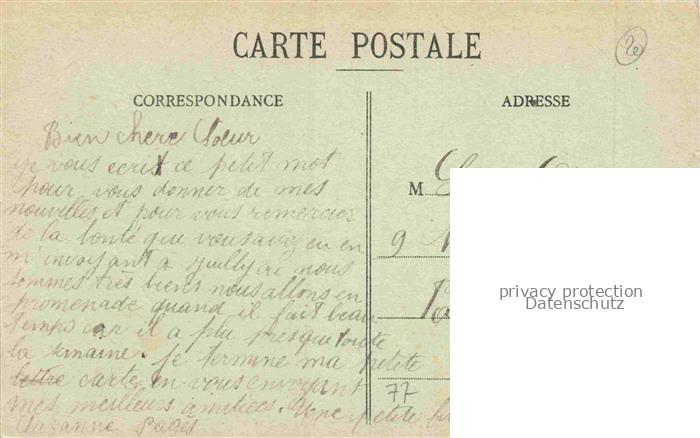 CARTE POSTALE
CORRESPONDANCE
ADRESSE
Bien chere Soeur
je vous ecrit ce petit mot
pour vous donner de mes
nouvelles et pour vous remercier
de la bonté que vous avez eu en
m'envoyant a Juilly ou nous
sommes très biens nous allons en
promenade quand il fait beau
temps car il a plu presque toute
la semaine. je termine ma petite
lettre carte en vous envoyant
mes meilleurs amitiées. Une petite
Suzanne Pagès
M
9
77
privacy protection
Datenschutz